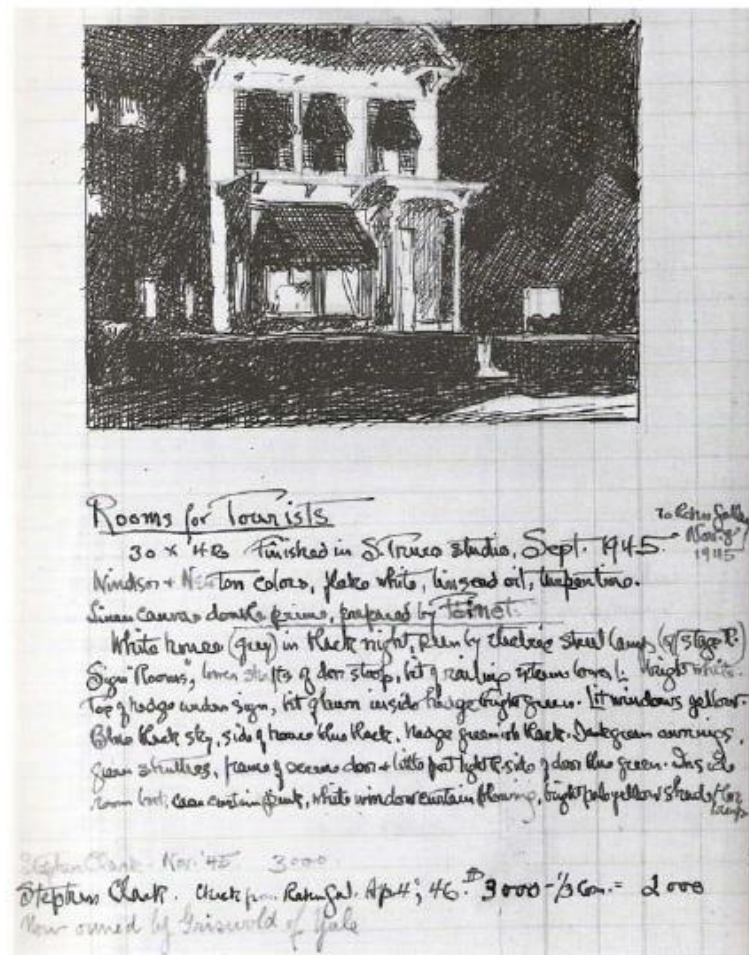 Rooms for Tourists
To Rehn Gallery
Nov. 8
1945
30 x 42 Finished in S. Truro studio, Sept. 1945.
Windsor + Newton colors, flake white, linseed oil, turpentine.
Linen canvas double prime, prepared by
White house (grey) in black night, seen by electric street lamp (off stage R.)
Sign "Rooms", lower steps of door stoop, bit of railing extreme lower L. bright white.
Top of hedge under sign, bit of lawn inside hedge bright green. Lit windows yellow.
Blue black sky, side of house blue black. Hedge greenish black. Dark green awnings,
green shutters, frame of screen door + little post light L. side of door blue green. Inside
room curtain pink, white window curtain blowing, bright pale yellow shade
Stephen Clark. Nov. '45 3000
Stephen Clark. Check from Rehn Gal. Ap. 4, '46. $3000 - 1/3 Com. = 2000
Now owned by Griswold of Yale